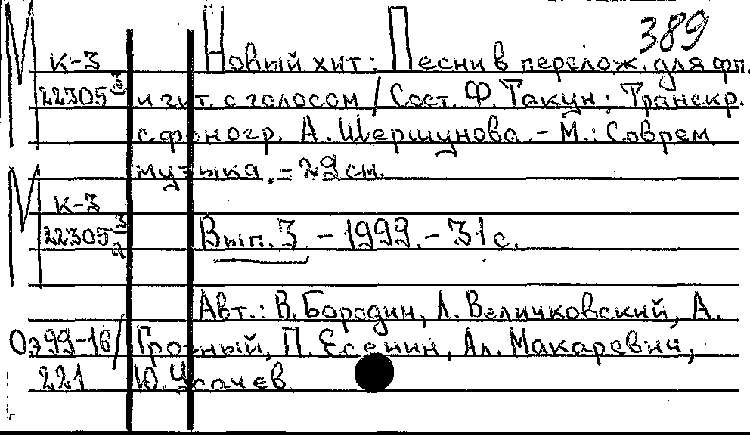 389
М К-3 Новый хит: Песни в перелож. для фп.
22305 и гит. с голосом / Сост. Ф. Такун; Транскр.
с фоногр. А. Шершунова. - М.: Соврем.
музыка. - 29 см.
М К-3
22305 Вып. 3. - 1999. - 31 с.
Авт.: В. Бородин, Л. Величковский, А.
Оэ99-16/ Грозный, П. Есенин, Ал. Макаревич,
221 Ю. Усачев